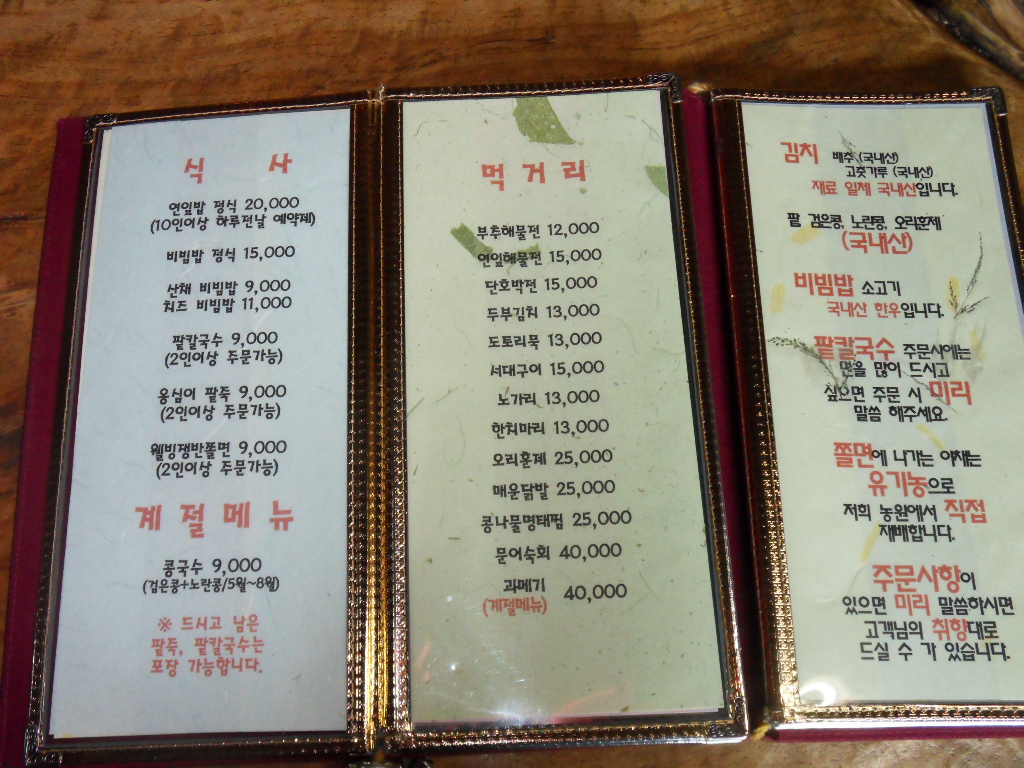 식 사
연잎밥 정식 20,000
(10인이상 하루전날 예약제)
비빔밥 정식 15,000
산채 비빔밥 9,000
치즈 비빔밥 11,000
팥칼국수 9,000
(2인이상 주문가능)
옹심이 팥죽 9,000
(2인이상 주문가능)
웰빙쟁반쫄면 9,000
(2인이상 주문가능)
계절메뉴
콩국수 9,000
(검은콩+노란콩/5월~8월)
※ 드시고 남은
팥죽, 팥칼국수는
포장 가능합니다.
먹거리
부추해물전 12,000
연잎해물전 15,000
단호박전 15,000
두부김치 13,000
도토리묵 13,000
서대구이 15,000
노가리 13,000
한치마리 13,000
오리훈제 25,000
매운닭발 25,000
콩나물명태찜 25,000
문어숙회 40,000
과메기 40,000
(계절메뉴)
김치 배추 (국내산)
고춧가루 (국내산)
재료 일체 국내산입니다.
팥 검은콩, 노란콩, 오리훈제
(국내산)
비빔밥 소고기
국내산 한우입니다.
팥칼국수 주문시에는
면을 많이 드시고
싶으면 주문 시 미리
말씀 해주세요.
쫄면에 나가는 야채는
유기농으로
저희 농원에서 직접
재배합니다.
주문사항이
있으면 미리 말씀하시면
고객님의 취향대로
드실 수 가 있습니다.